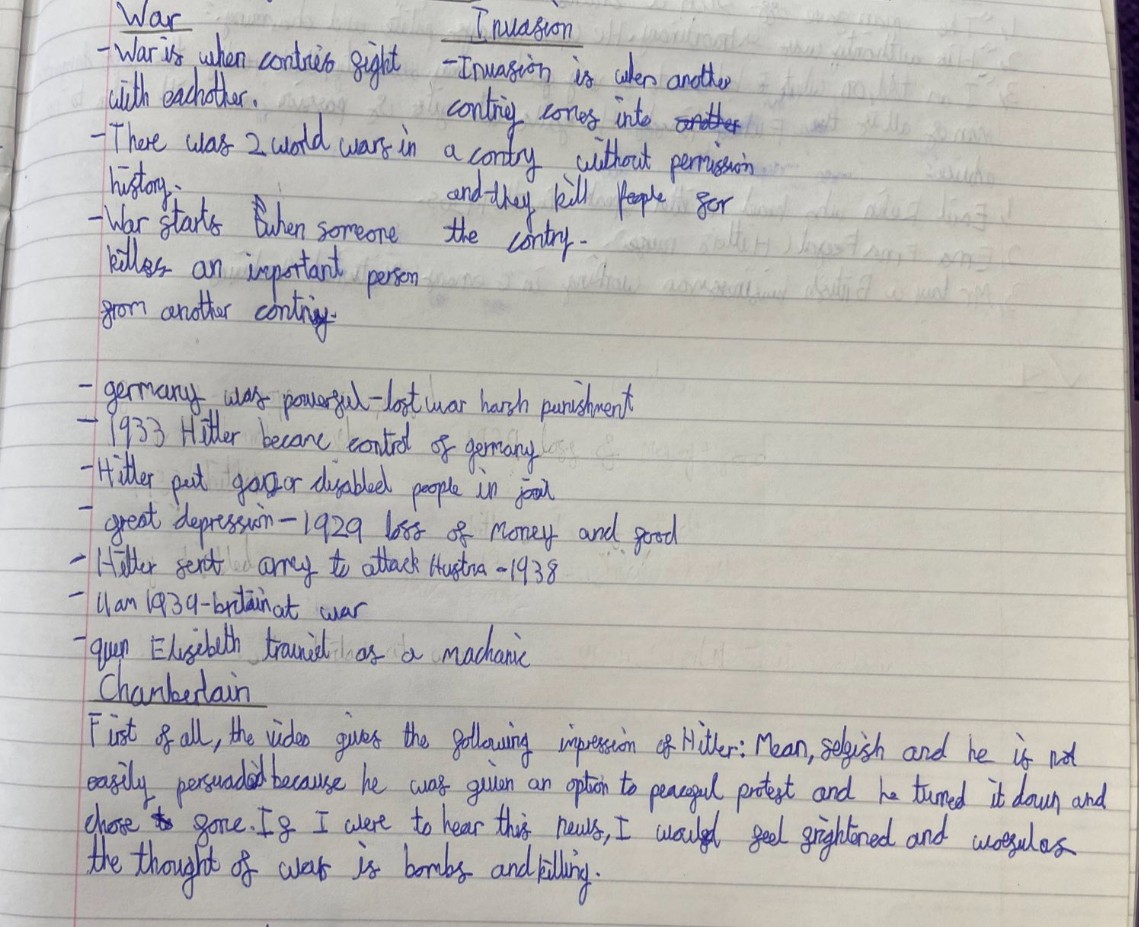 War
- War is when contries fight
with eachother.
- There was 2 world wars in
history.
- War starts when someone
killes an important person
from another contriy.
Invasion
- Invasion is when another
contriy comes into
a contry without permission
and they kill people for
the contry.
- germany was powerful - lost war harsh punishment
- 1933 Hitler became control of germany
- Hitler put gay or disabled people in jail
- great depression - 1929 loss of money and food
- Hitler sent army to attack Austria - 1938
- 11am 1939 - britain at war
- quen Elisebeth trained as a machanic
Chamberlain
First of all, the video gives the following impression of Hitler: Mean, selfish and he is not
easily persuaded because he was given an option to peaceful protest and he turned it down and
chose forse. If I were to hear this news, I would feel frightened and woeful as
the thought of war is bombs and killing.